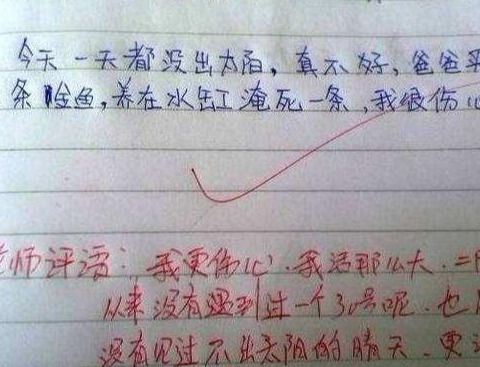 今天一天都没出太阳，真不好，爸爸
条金鱼，养在水缸淹死一条，我很伤心
师评语：我更伤心．我活那么大．二月
从来没有遇到过一个30号呢．也
没有见过不出太阳的晴天．更